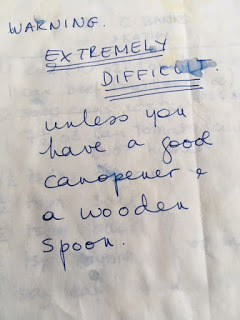 WARNING.
EXTREMELY
DIFFICULT.
unless you
have a good
canopener &
a wooden
spoon.